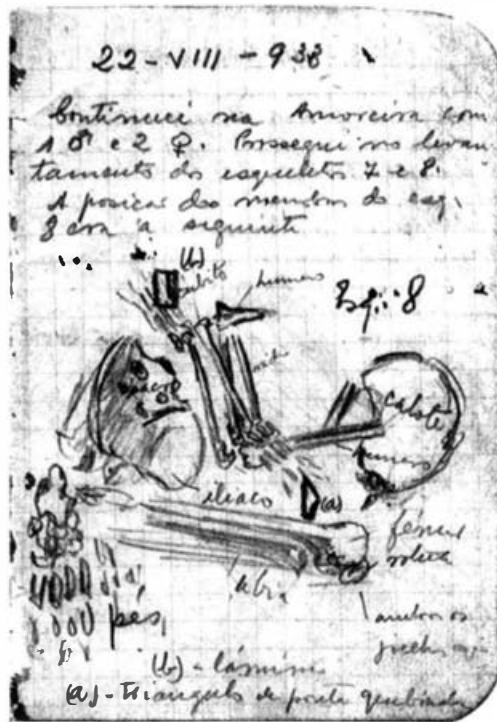 22 - VIII - 933
Continuei na Amoreira com
1 ♂ e 2 ♀. Prossegui no levan
tamento dos esqueletos 7 e 8.
A posicao dos membros do esq.
8 era a seguinte
(b)
cubito
humero
Esq. 8
radio
sacro
calote
humero
iliaco
(a)
femur
rotula
tibia
pés
ambos os
joelhos
(b) - lâmina
(a) - triangulo de ponta quebrada